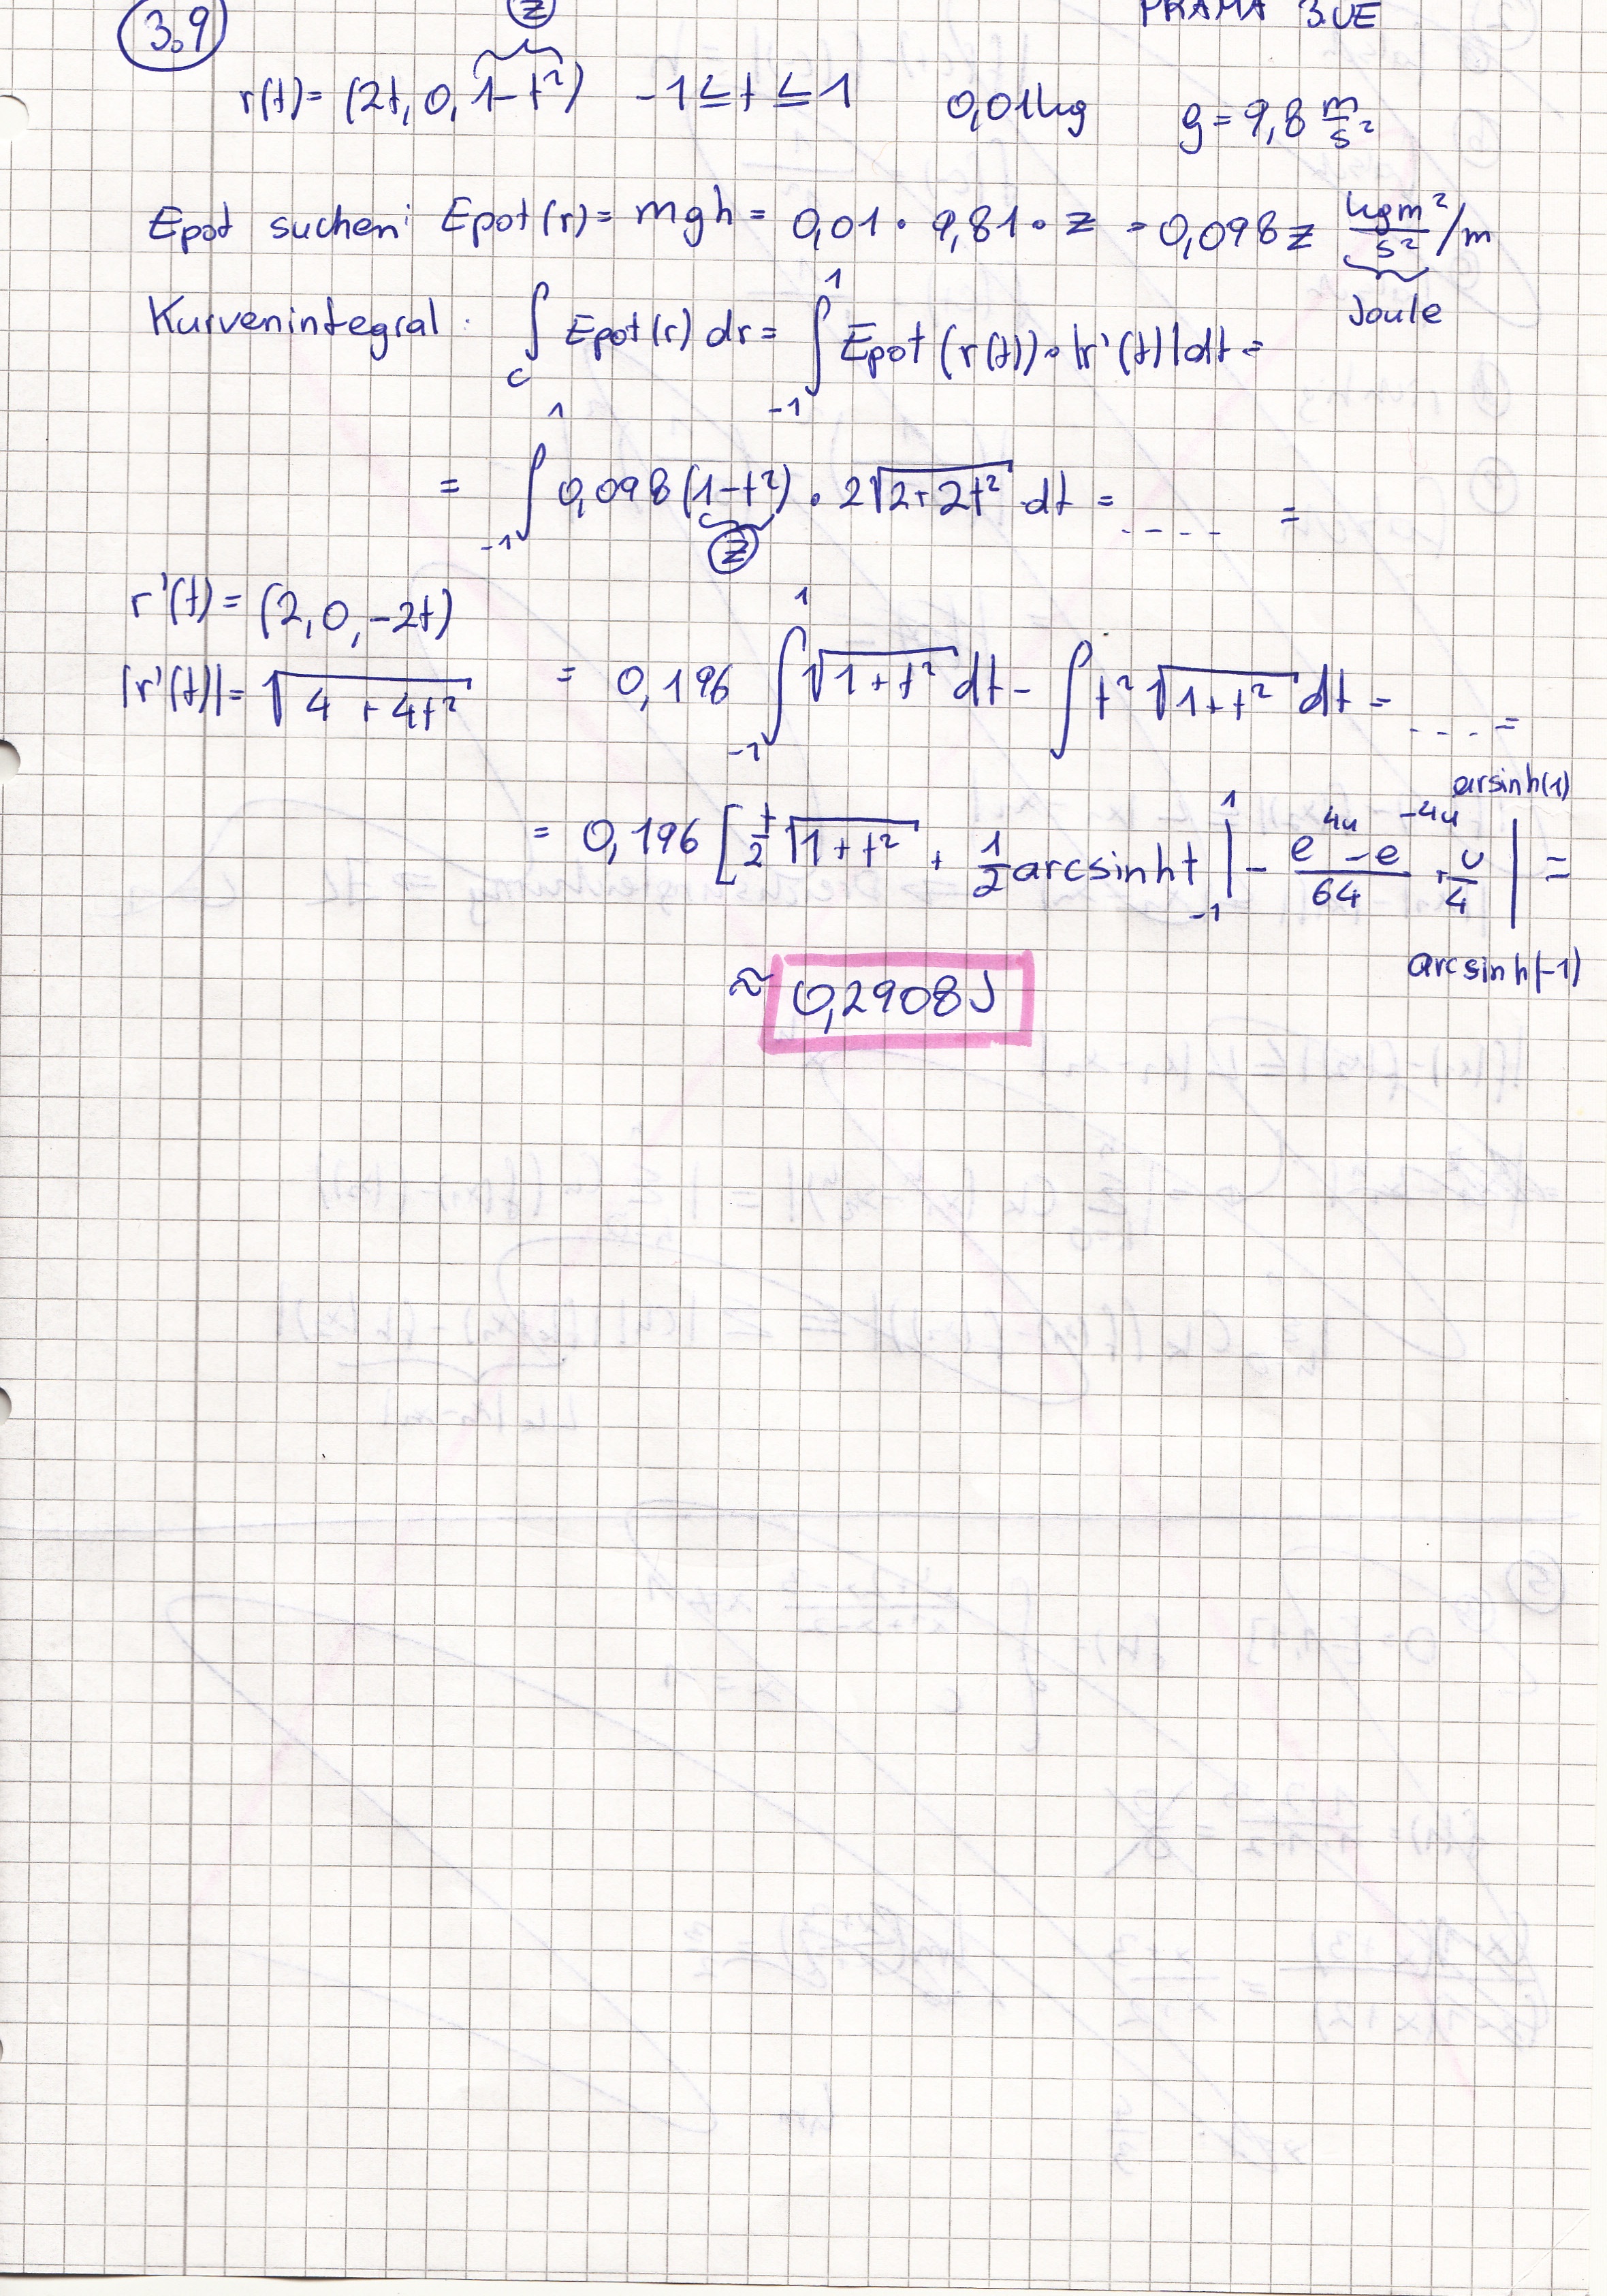 PRAMA 3.UE
3.9
z
r(t) = (2t, 0, 1-t²) -1 ≤ t ≤ 1 0,01kg g = 9,8 m/s²
Epot suchen: Epot(r) = mgh = 0,01 · 9,81 · z = 0,098 z kgm²/s² /m
Joule
Kurvenintegral: ∫_C Epot(r) dr = ∫_{-1}^{1} Epot (r(t)) · |r'(t)| dt =
= ∫_{-1}^{1} 0,098 (1-t²) · 2√(2+2t²) dt = .... =
z
r'(t) = (2, 0, -2t)
|r'(t)| = √(4 + 4t²) = 0,196 ∫_{-1}^{1} √(1+t²) dt - ∫ t² √(1+t²) dt = .... =
= 0,196 [t/2 √(1+t²) + 1/2 arcsinh t |_{-1}^{1} - (e^{4u} - e^{-4u})/64 + u/4 |_{arcsinh(-1)}^{arsinh(1)} =
≈ 0,2908 J